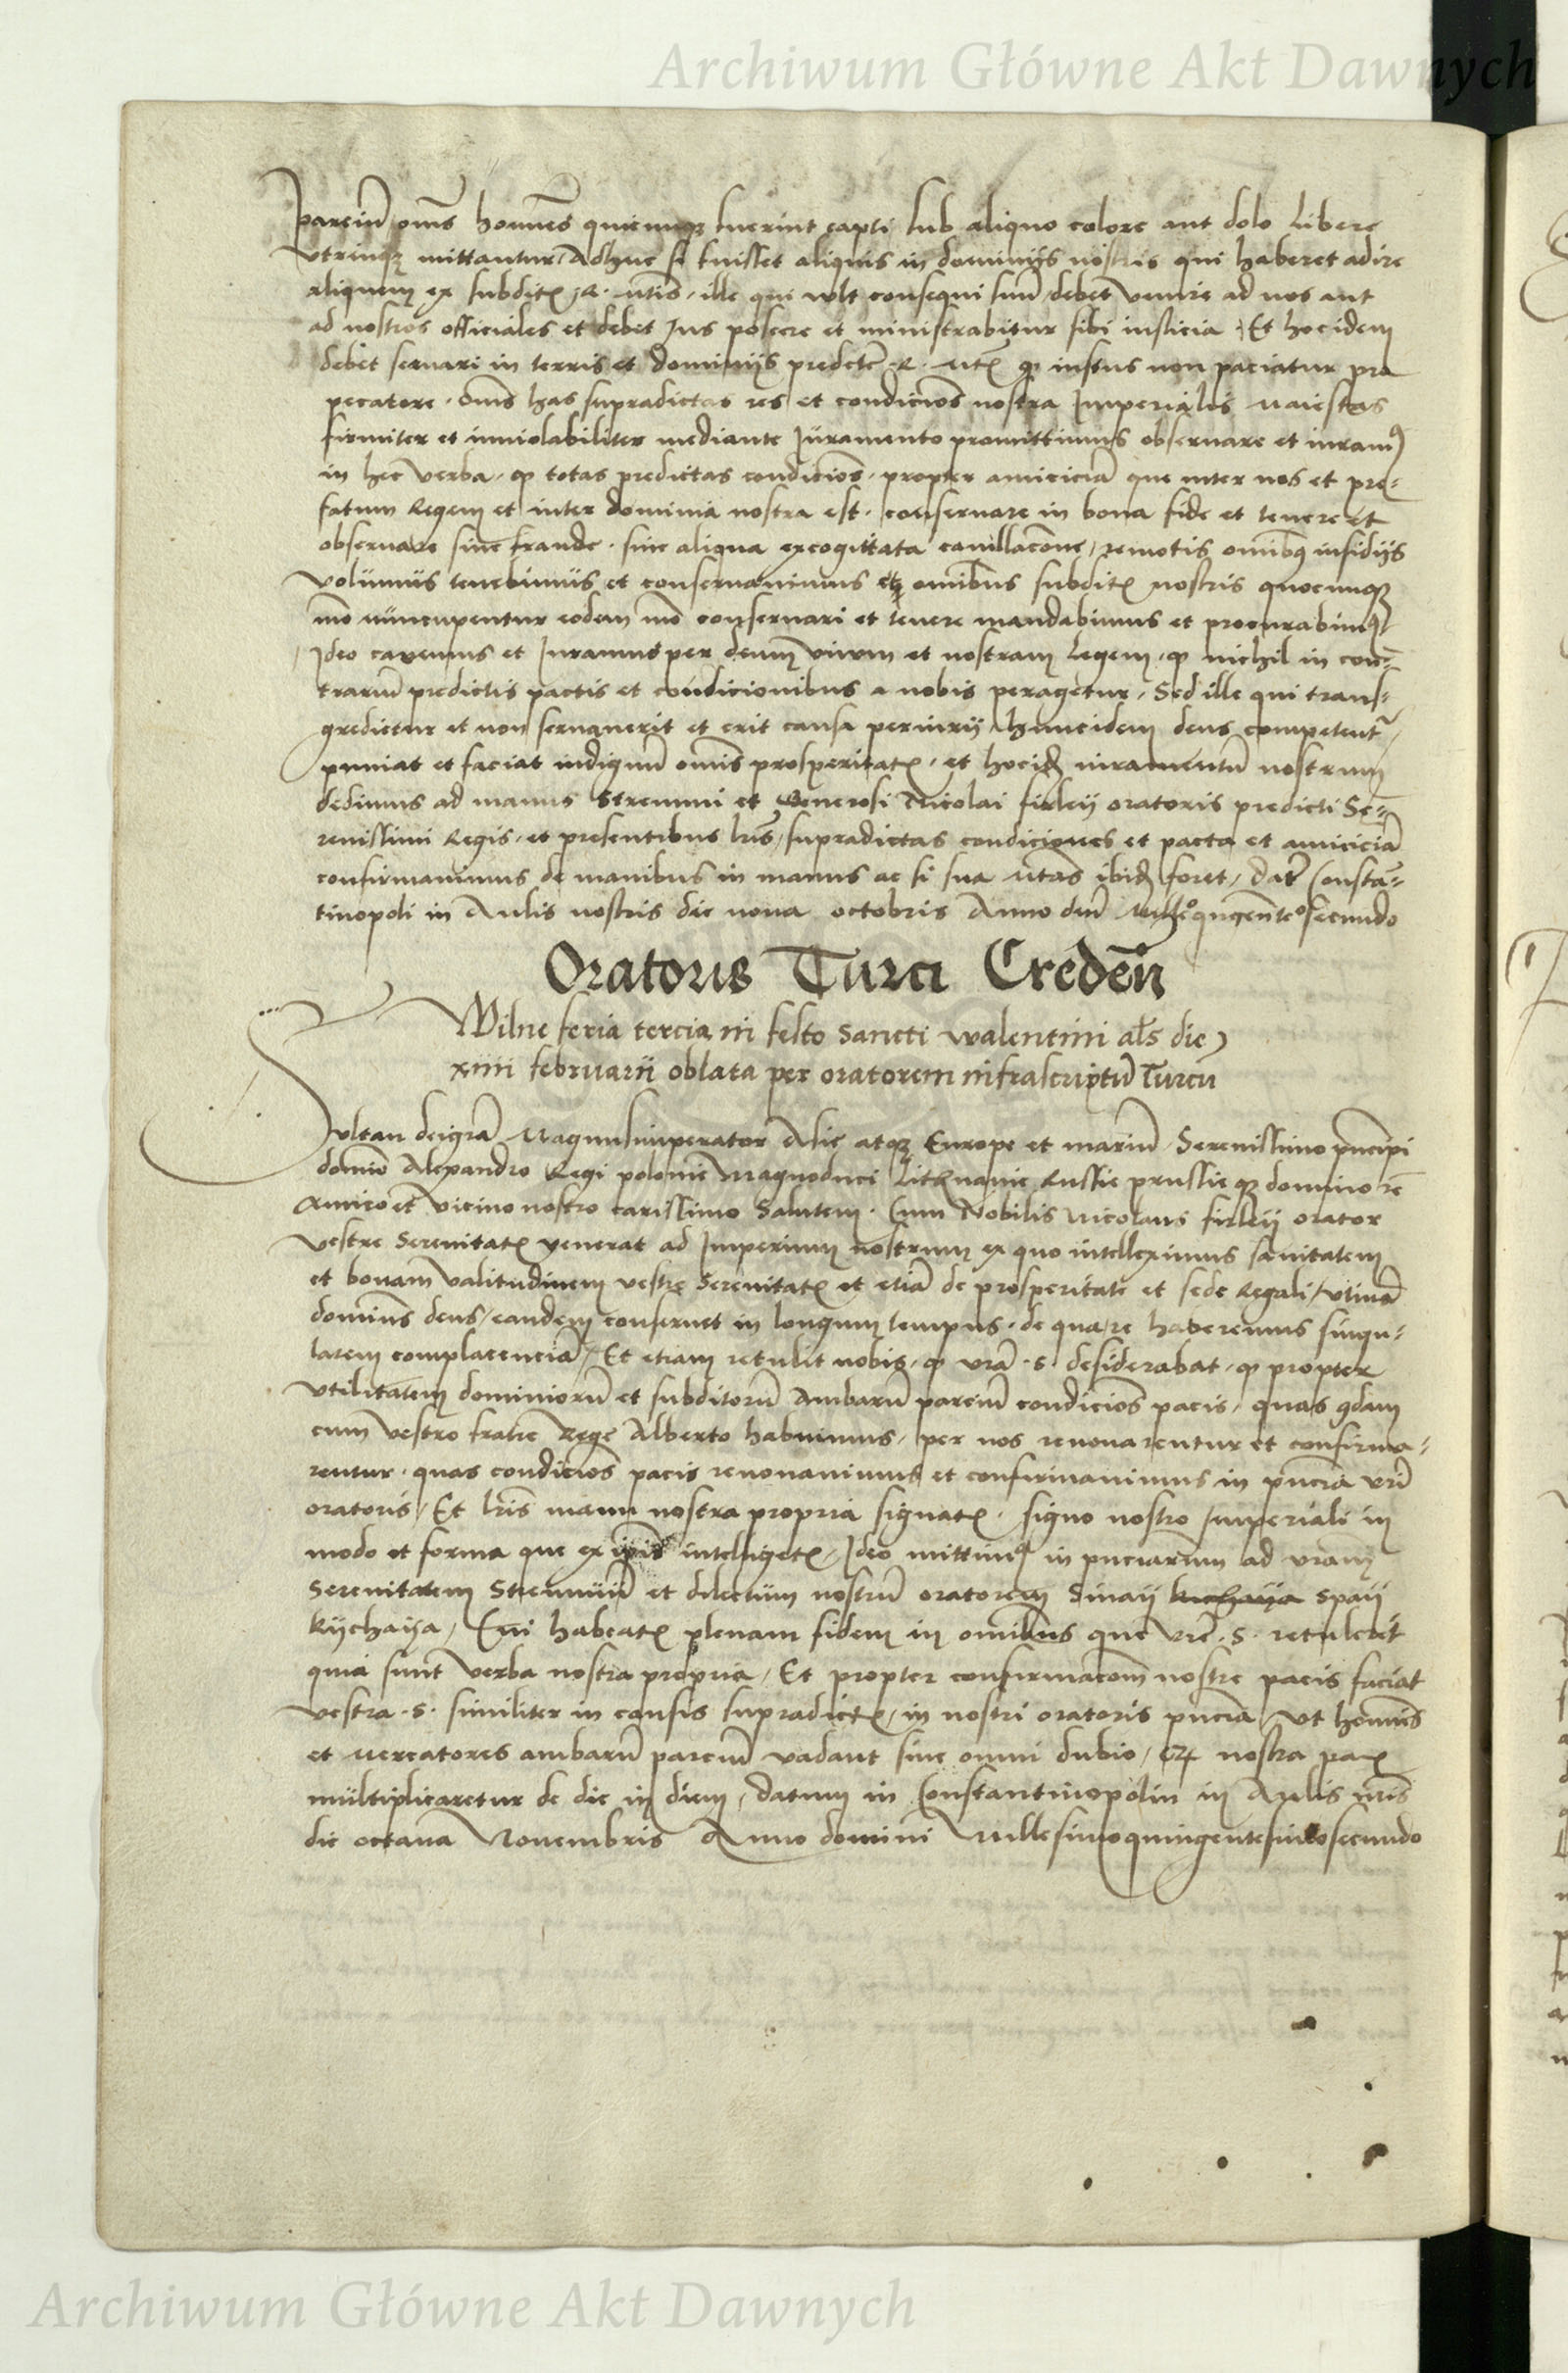 Archiwum Główne Akt Dawnych
parciũ om̃s hom̃es quicunqz fuerint capti sub aliquo colore aut dolo libere
vtrinqz mittantur Adhuc si fuisset aliquis in dominijs nostris qui haberet adire
aliquem ex subditꝭ R. Mtis. ille qui wlt consequi suũ debet venire ad nos aut
ad nostros officiales et debet Jus poscere et ministrabitur sibi iusticia Et hoc idem
debet seruari in terris et dominijs predcte R. Mtꝭ ꝙ iustus non paciatur pro
pecatore. Om̃s has supradictas res et condicio͂s nostra Imperialis Maiestas
firmiter et inuiolabiliter mediante Juramento promittimus obseruare et iuramꝰ
in hec verba. ꝙ totas predictas condicio͂s. propter amiciciã que inter nos et pre-
fatum Regem et inter dominia nostra est. conseruare in bona fide et tenere et
obseruare sine fraude. sine aliqua excogittata cauillaco͂ne remotis omibꝫ insidijs
volumus tenebimus et conseruauimus et omĩbus subditꝭ nostris quocunqz
mo͂ nuncupentur eodem mo͂ conseruari et tenere mandabimus et procurabimꝰ
Ideo cauemus et Juramus per deum viuum et nostram legem. ꝙ nichil in con-
trariũ predictis pactis et condicionibus a nobis peragetur. Sed ille qui trans-
gredietur et non seruauerit et erit causa periurij huncidem deus competent͛
puniat et faciat indignũ om̃is prosperitatꝭ. et hocidẽ iuramentũ nostrum
dedimus ad manus Strennui et Generosi Nicolai firleij oratoris predicti Se-
renissimi Regis. et presentibus lrĩs supradictas condiciones et pacta et amiciciã
confirmauimus de manibus in manus ac si sua Mtas ibidẽ foret. Dat̃ Constã-
tinopoli in Aulis nostris die nona octobris Anno dnĩ Mill͂oqngenteo͂secundo
Oratoris Turci Creden̄
Wilne feria tercia in festo Sancti walentini al̃s die
xiiii februarii oblata per oratorem infrascriptũ Turcũ
Sultan dei gr̃a Magnus imperator Asie atqz Europe et mariũ. Serenissimo prĩncipi
domĩo Alexandro Regi polonie Magnoduci Lithvanie Russie prussieqz domino et͂
Amico et vicino nostro carissimo Salutem. Cum Nobilis Nicolaus firleij orator
vestre Serenitatꝭ venerat ad Imperium nostrum ex quo intelleximus sanitatem
et bonam valitudinem vestre Serenitatꝭ et etiã de prosperitate et sede Regali vtinã
dominus deus eandem conseruet in longum tempus. de qua re haberemus singu-
larem complacenciã. Et etiam retulit nobis. ꝙ vr̃a .S. desiderabat. ꝙ propter
vtilitatem dominiorũ et subditorũ Ambarũ parciũ condicio͂s pacis. quas qdam
cum vestro fratre Rege Alberto habuimus. per nos renouarentur et confirma-
rentur. quas condicio͂s pacis renouauimus et confirmauimus in pñcia vr̃i
oratoris. Et lrĩs manu nostra propria signatꝭ. signo nostro Imperiali in
modo et forma que ex ip̃is intelligetꝭ. Ideo mittimꝰ in pñciarum ad vr̃am
Serenitatem Strennuũ et dilectum nostrũ oratorem Sinaij Spaij
Kijchaija. Cui habeatꝭ plenam fidem in omĩbus que vr̃e .S. retulerit
quia sunt verba nostra propria. Et propter confirmaco͂m nostre pacis faciat
vestra .S. similiter in causis supradictꝭ. in nostri oratoris pñcia. Vt hom̃es
et Mercatores ambarũ parciũ vadant sine omni dubio. nostra pax
multiplicaretur de die in diem. Datum in Constantinopolin in Aulis nrĩs
die octaua Nouembris Anno domini Millesimoquingentesimosecundo
Archiwum Główne Akt Dawnych